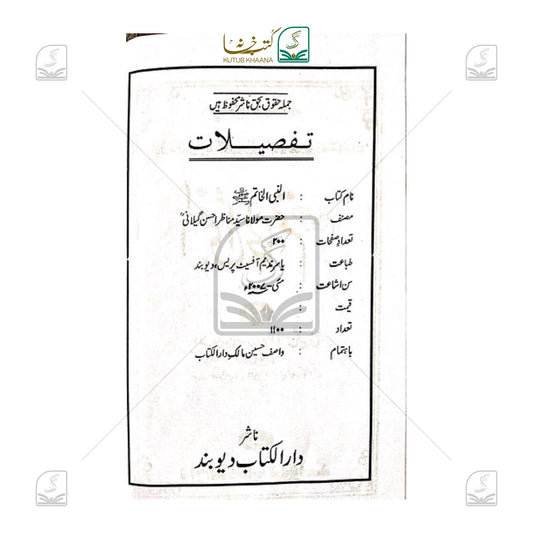 کتب خانہ
KUTUB KHAANA
جملہ حقوق بحق ناشر محفوظ ہیں
تفصیلات
نام کتاب : النبی الخاتم ﷺ
مصنف : حضرت مولانا سید مناظر احسن گیلانیؒ
تعداد صفحات : ۲۰۰
طباعت : یاسر ندیم آفسیٹ پریس، دیوبند
سن اشاعت : مئی ۲۰۰۷ء
قیمت :
تعداد : ۱۱۰۰
باہتمام : واصف حسین مالک دارالکتاب
ناشر
دارالکتاب دیوبند